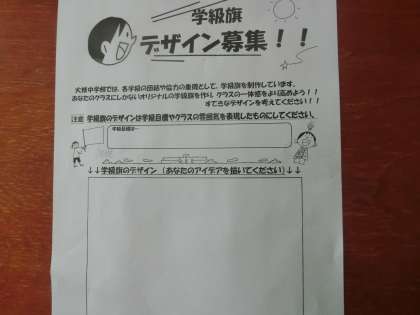 学級旗
デザイン募集！！
大橋中学校では、各学級の団結や協力の象徴として、学級旗を制作しています。
あなたのクラスにしかないオリジナルの学級旗を作り、クラスの一体感をより高めよう！！
すてきなデザインを考えてください！！
注意 学級旗のデザインは学級目標やクラスの雰囲気を表現したものにしてください。
学級目標は…
↓↓学級旗のデザイン（あなたのアイデアを描いてください）↓↓